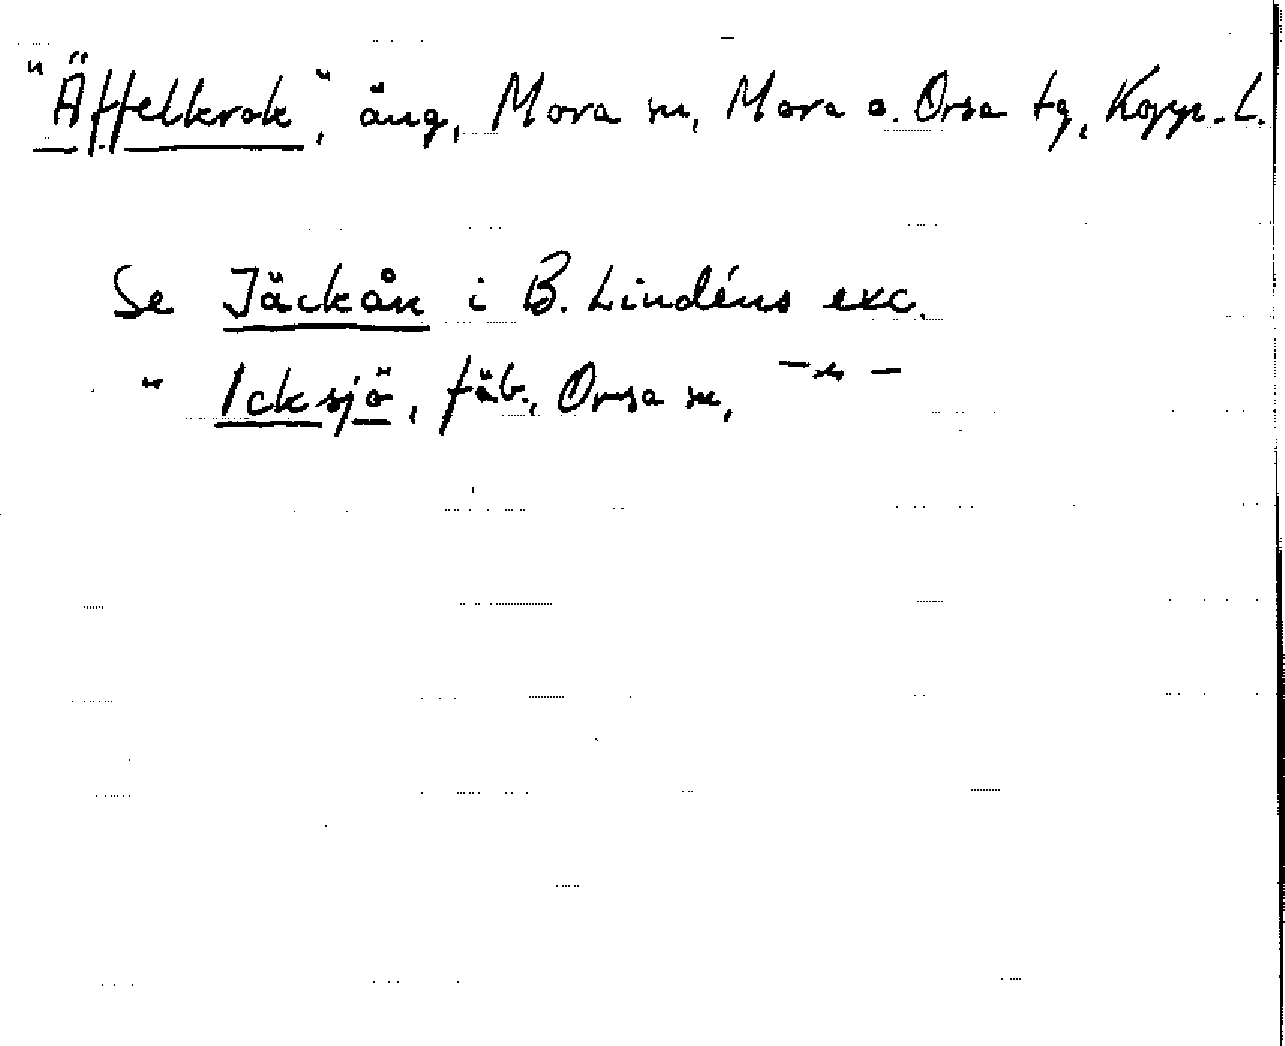 "Äffelkrok", äng, Mora sn, Mora o. Orsa tg, Kopp. L.
Se Jäckån i B. Lindéns exc.
" Icksjö, fäb., Orsa sn, — " —